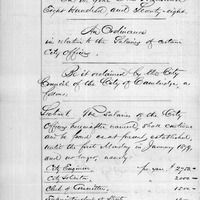 Eight Hundred and Seventy-eight.
An Ordinance
in relation to the Salaries of certain
City Officers.
Be it ordained by the City
Council of the City of Cambridge, as
follows:
Section 1. The Salaries of the City
Officers hereinafter named, shall continue
as now established,
until the first Monday in January 1879,
and no longer, namely:
City Engineer per year $2750.-
City Solicitor 2000.-
Clerk of Committees 1500.-